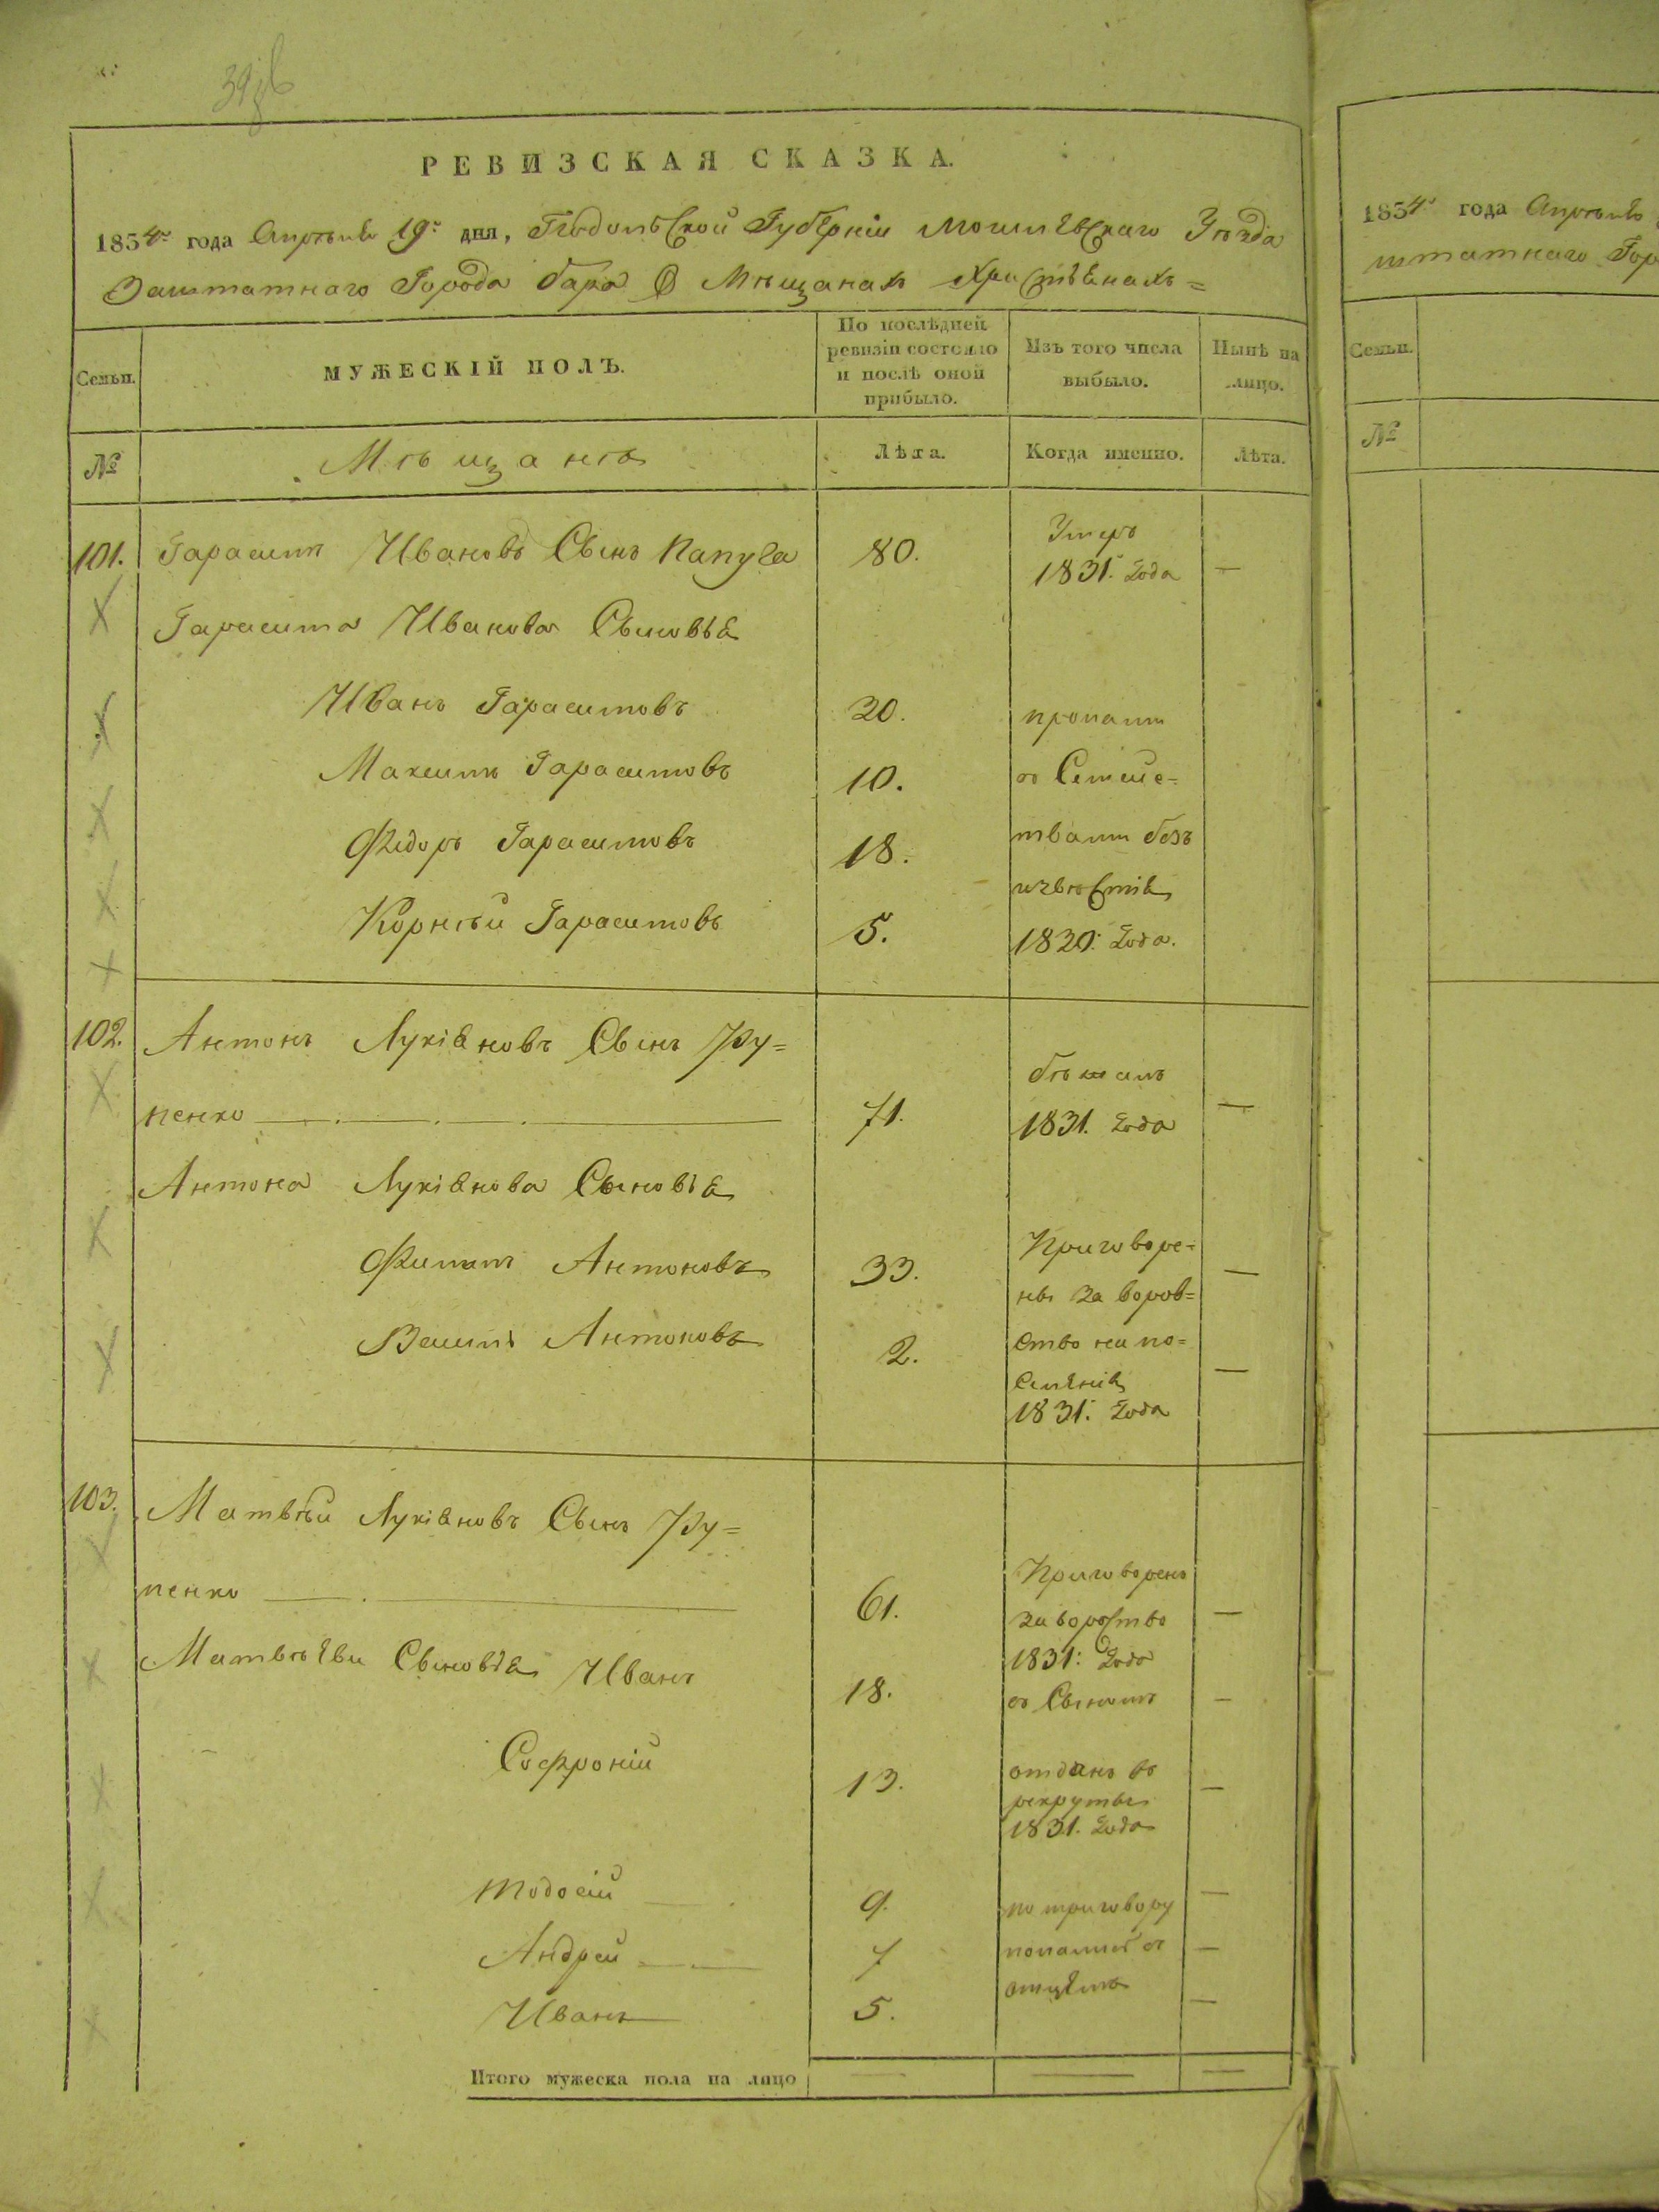 РЕВИЗСКАЯ СКАЗКА.
1854 года Апреля 19 дня, Подольской Губерніи Могилевскаго Уезда
Заштатнаго Города Бара О Мещанахъ Христіянахъ =
Семьи. МУЖЕСКІЙ ПОЛЪ. По послѣдней ревизіи состояло и послѣ оной прибыло. Изъ того числа выбыло. Нынѣ на лицо.
№ Мѣщане Лѣта. Когда именно. Лѣта.
101. Гарасимъ Ивановъ Сынъ Папуга 80. Умеръ 1831. года —
Гарасима Иванова Сыновья
Иванъ Гарасимовъ 20. пропали
Максимъ Гарасимовъ 10. съ Семѣйс=
Фидоръ Гарасимовъ 18. твами безъ
извѣстія
Корнѣй Гарасимовъ 5. 1820. года.
102. Антонъ Лукіяновъ Сынъ
пенко 71. бѣжалъ 1831. года —
Антона Лукіянова Сыновья
Филипъ Антоновъ 33. Приговоре= —
ны за воров=
Антоновъ 2. ство на по= —
селеніе
1831. года
103. Матвѣй Лукіяновъ Сынъ
пенко 61. Приговоренъ за воровство 1831. года —
Матвѣеви Сыновья Иванъ 18. съ Сыномъ —
Софроній 13. отданъ въ рекруты 1831. года —
Тодосій 9. по приговору —
Андрей 7 съ —
Иванъ 5. отцемъ —
Итого мужеска пола на лицо — — —
1854 года Апреля
штатнаго Гор
Семьи.
№